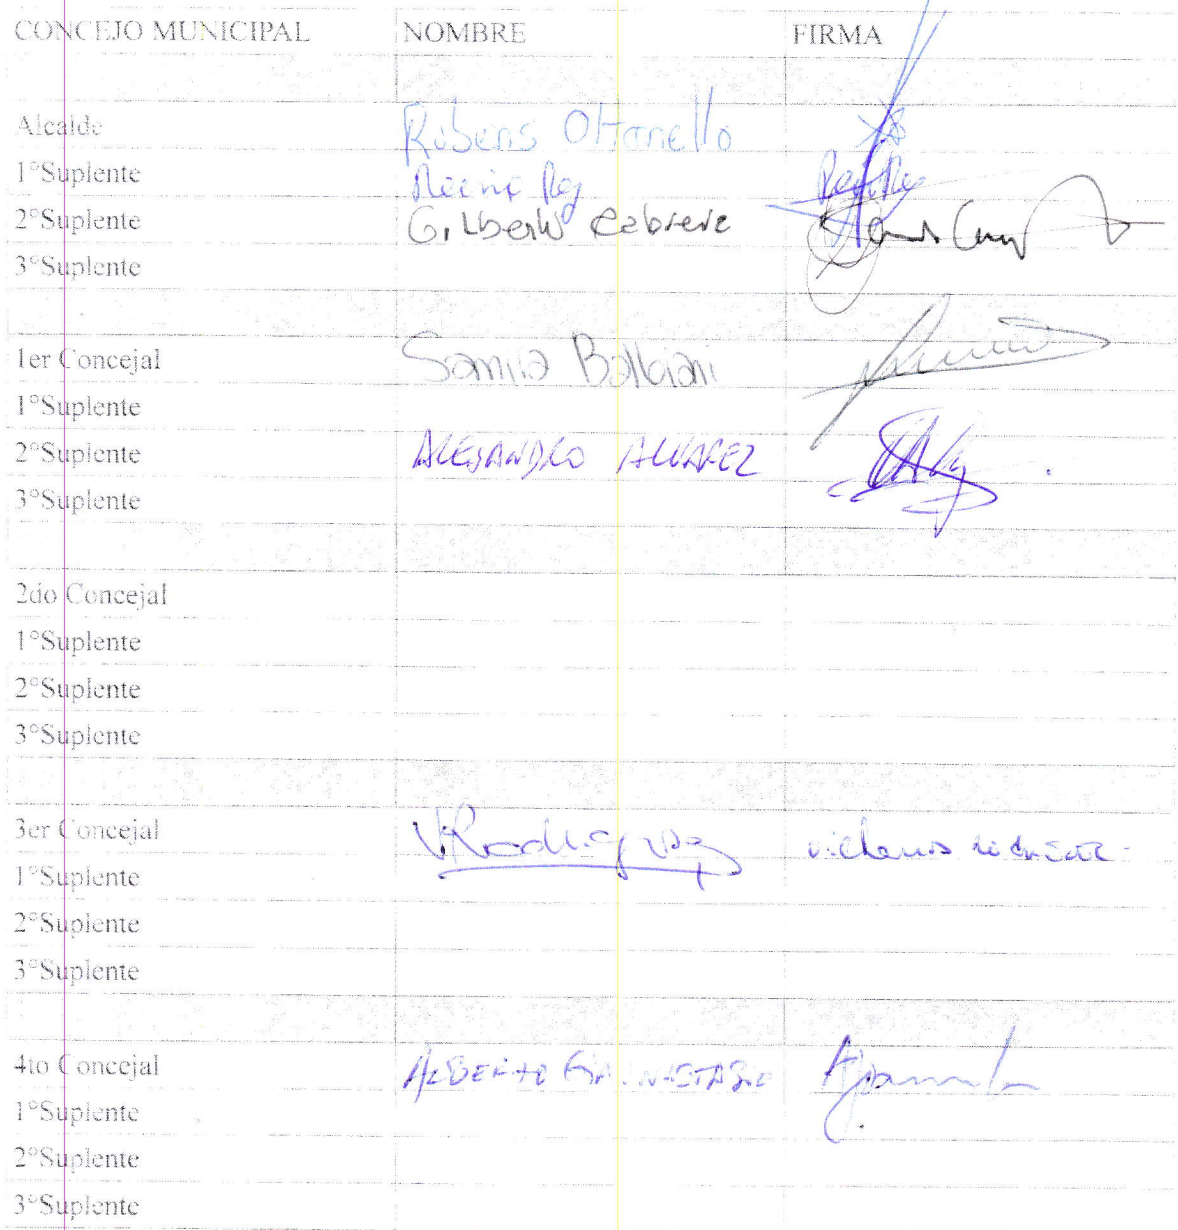 CONCEJO MUNICIPAL NOMBRE FIRMA
Alcalde Rubens Ottonello
1°Suplente Rey
2°Suplente Gilberto Cabrera
3°Suplente
1er Concejal Samira Balbiani
1°Suplente
2°Suplente ALEJANDRO ALVAREZ
3°Suplente
2do Concejal
1°Suplente
2°Suplente
3°Suplente
3er Concejal V. Rodriguez
1°Suplente
2°Suplente
3°Suplente
4to Concejal ALBERTO
1°Suplente
2°Suplente
3°Suplente